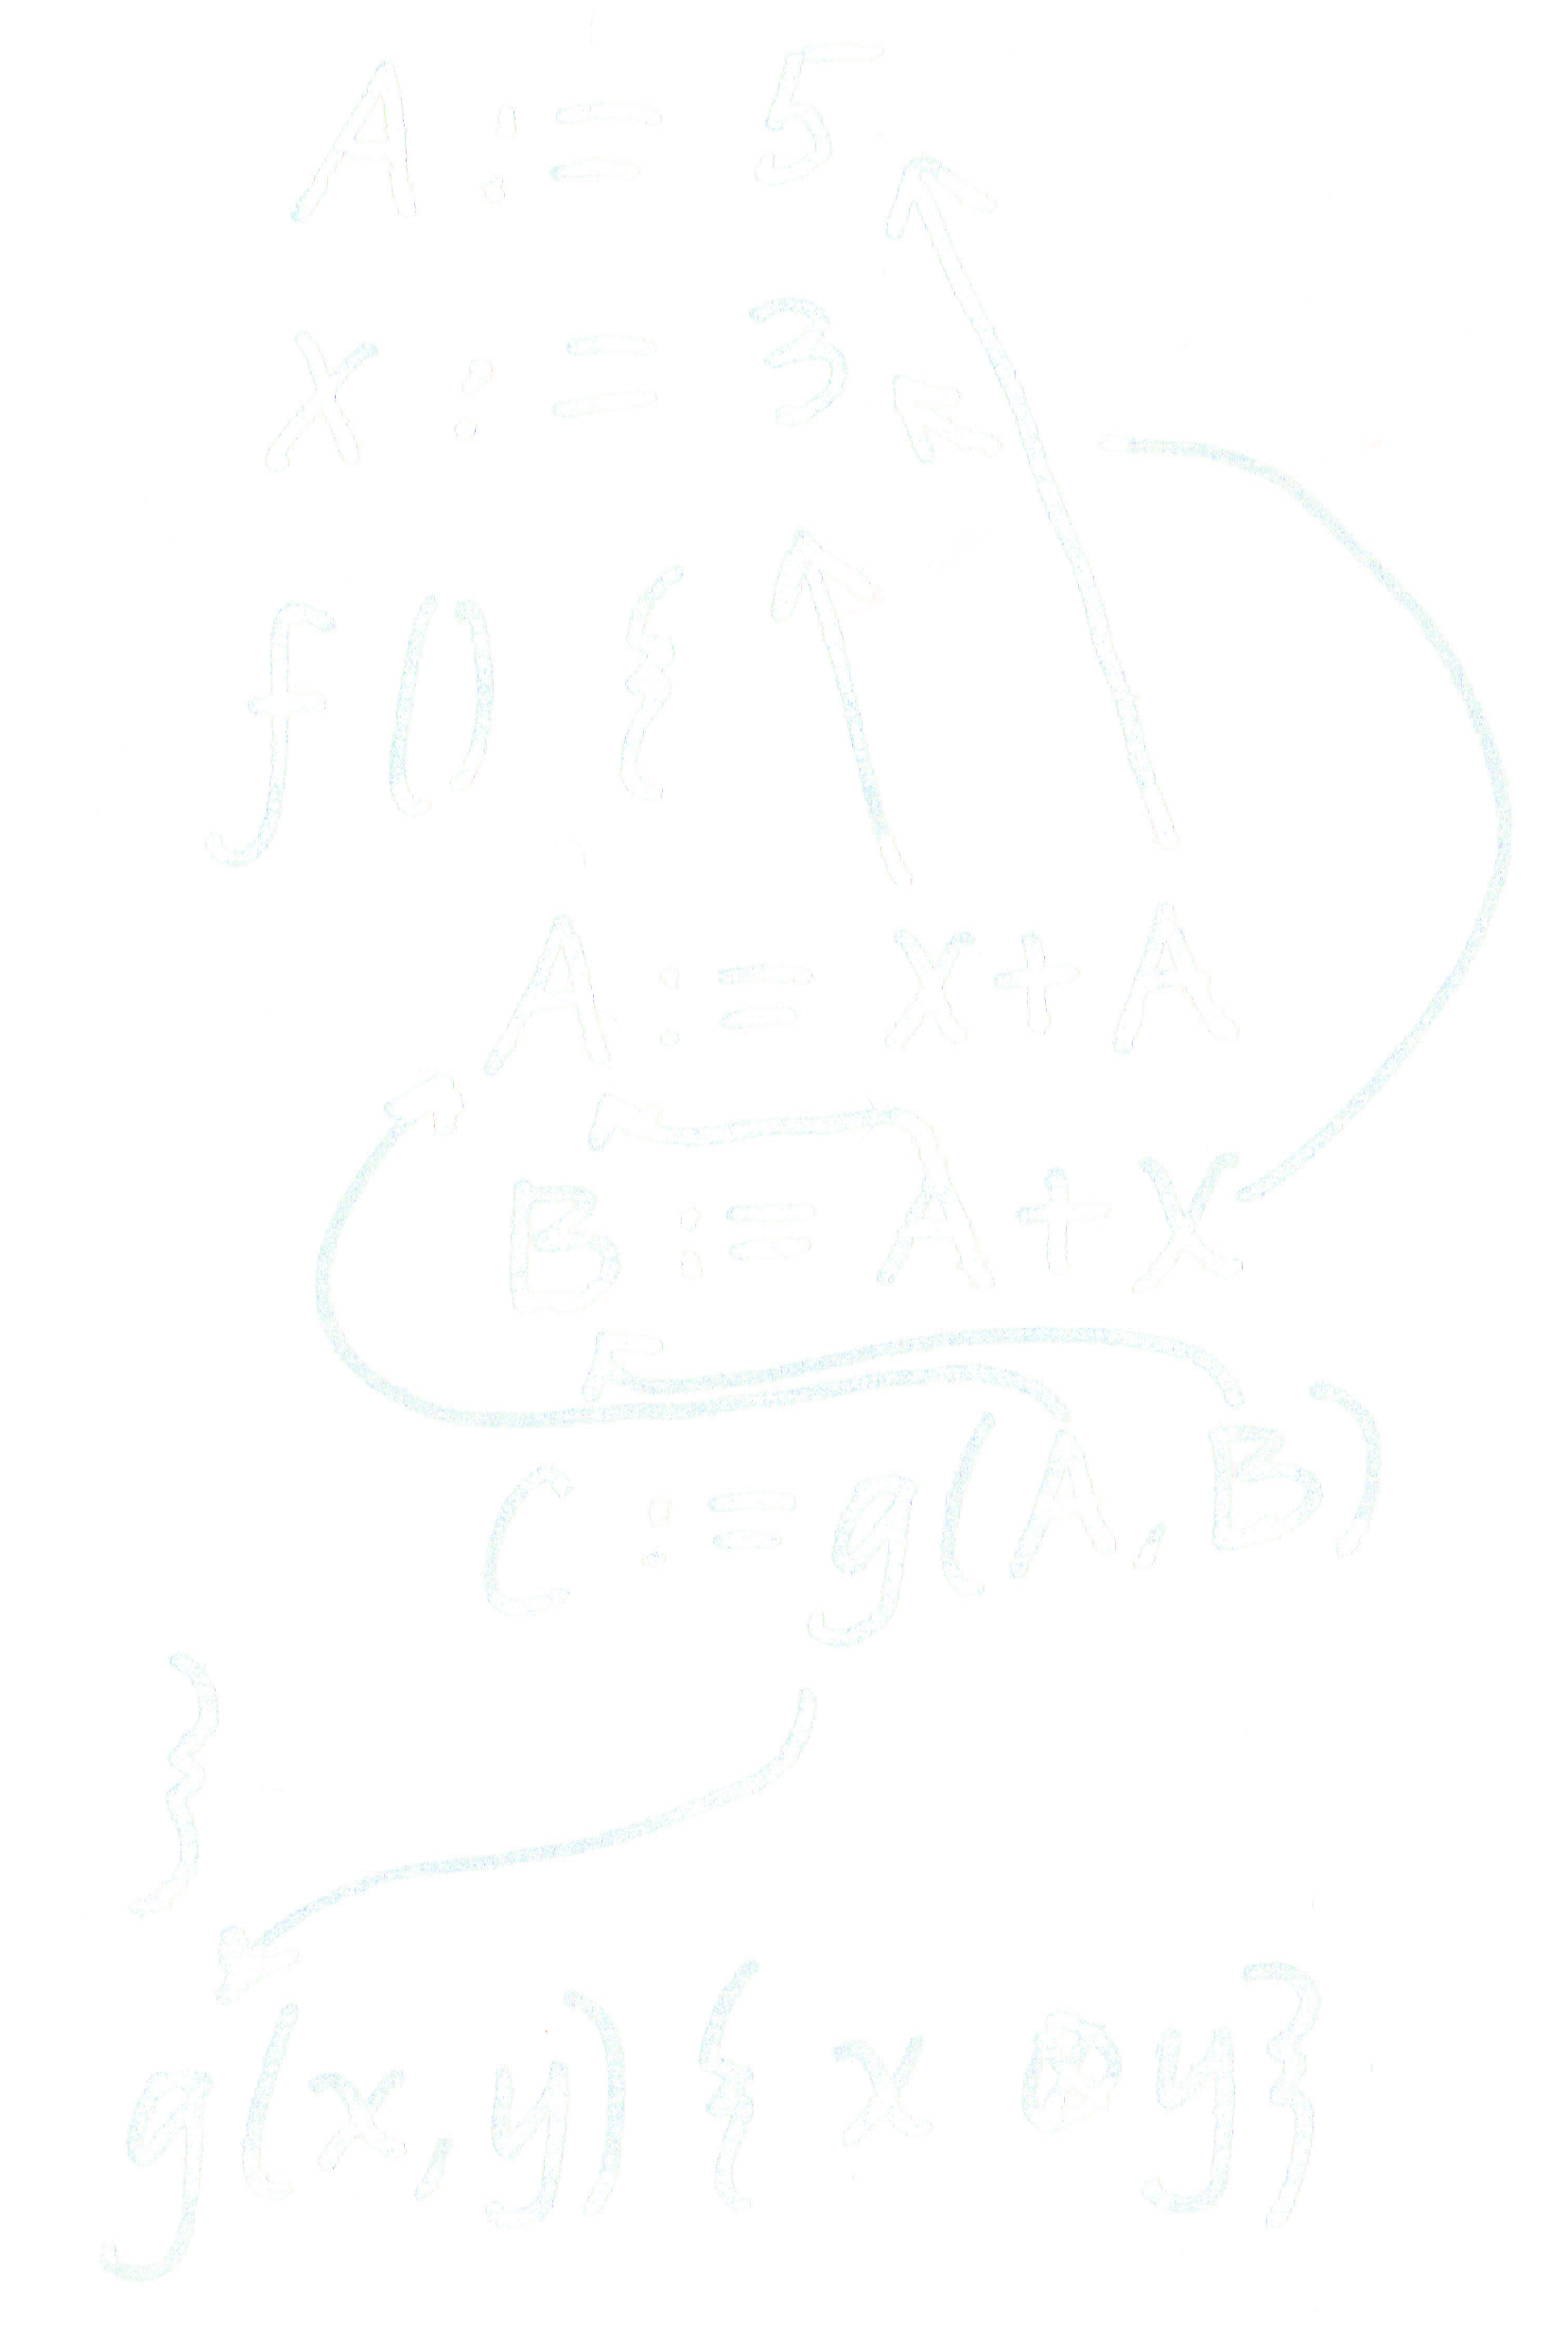 A := 5
X := 3
f() {
A := X + A
B := A + X
C := g(A, B)
}
g(x, y) { x ⊗ y }